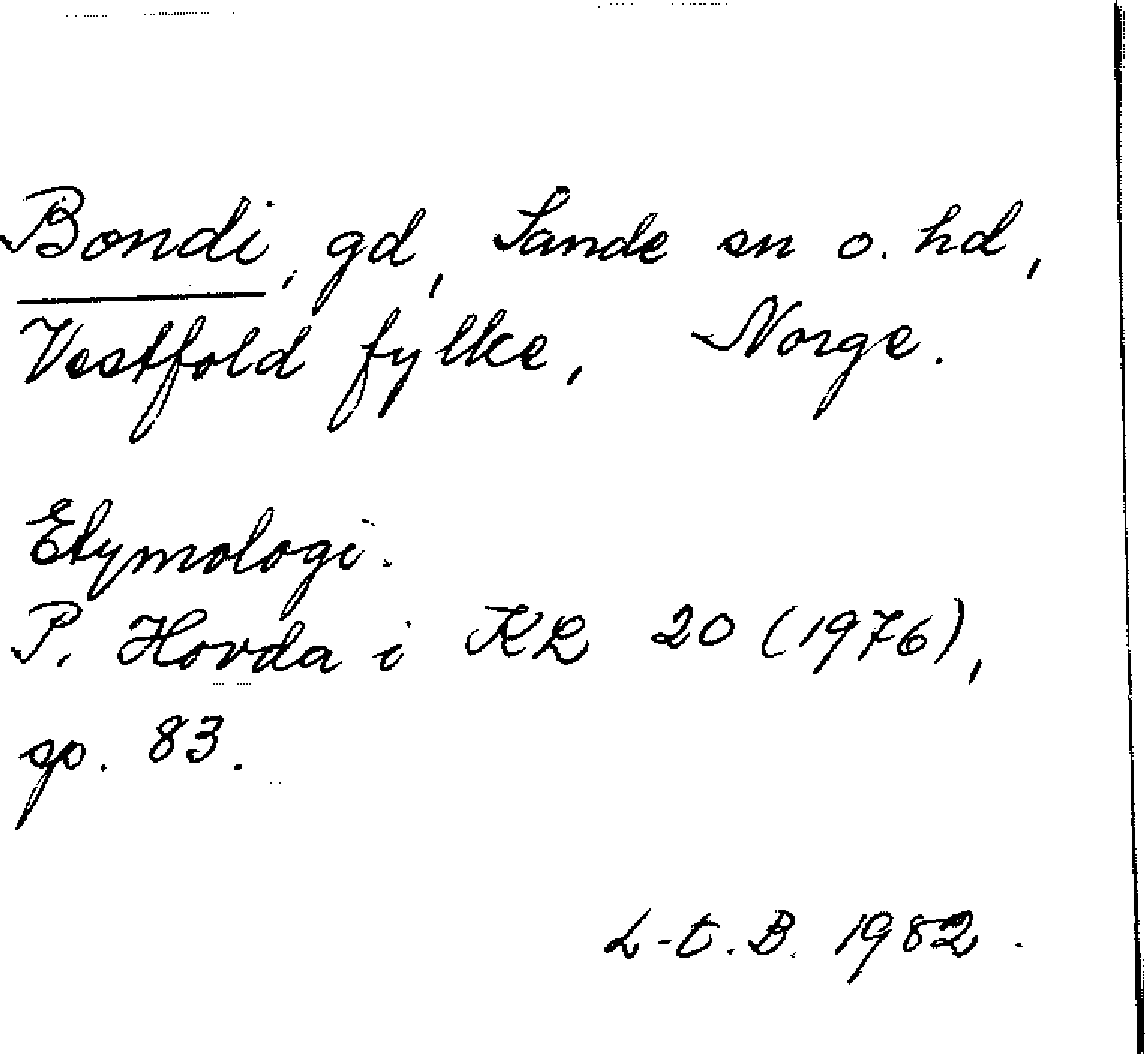 Bondi, gd, Sande sn o. hd,
Vestfold fylke, Norge.
Etymologi.
P. Hovda i KL 20 (1976),
sp. 83.
L-t. B. 1982.